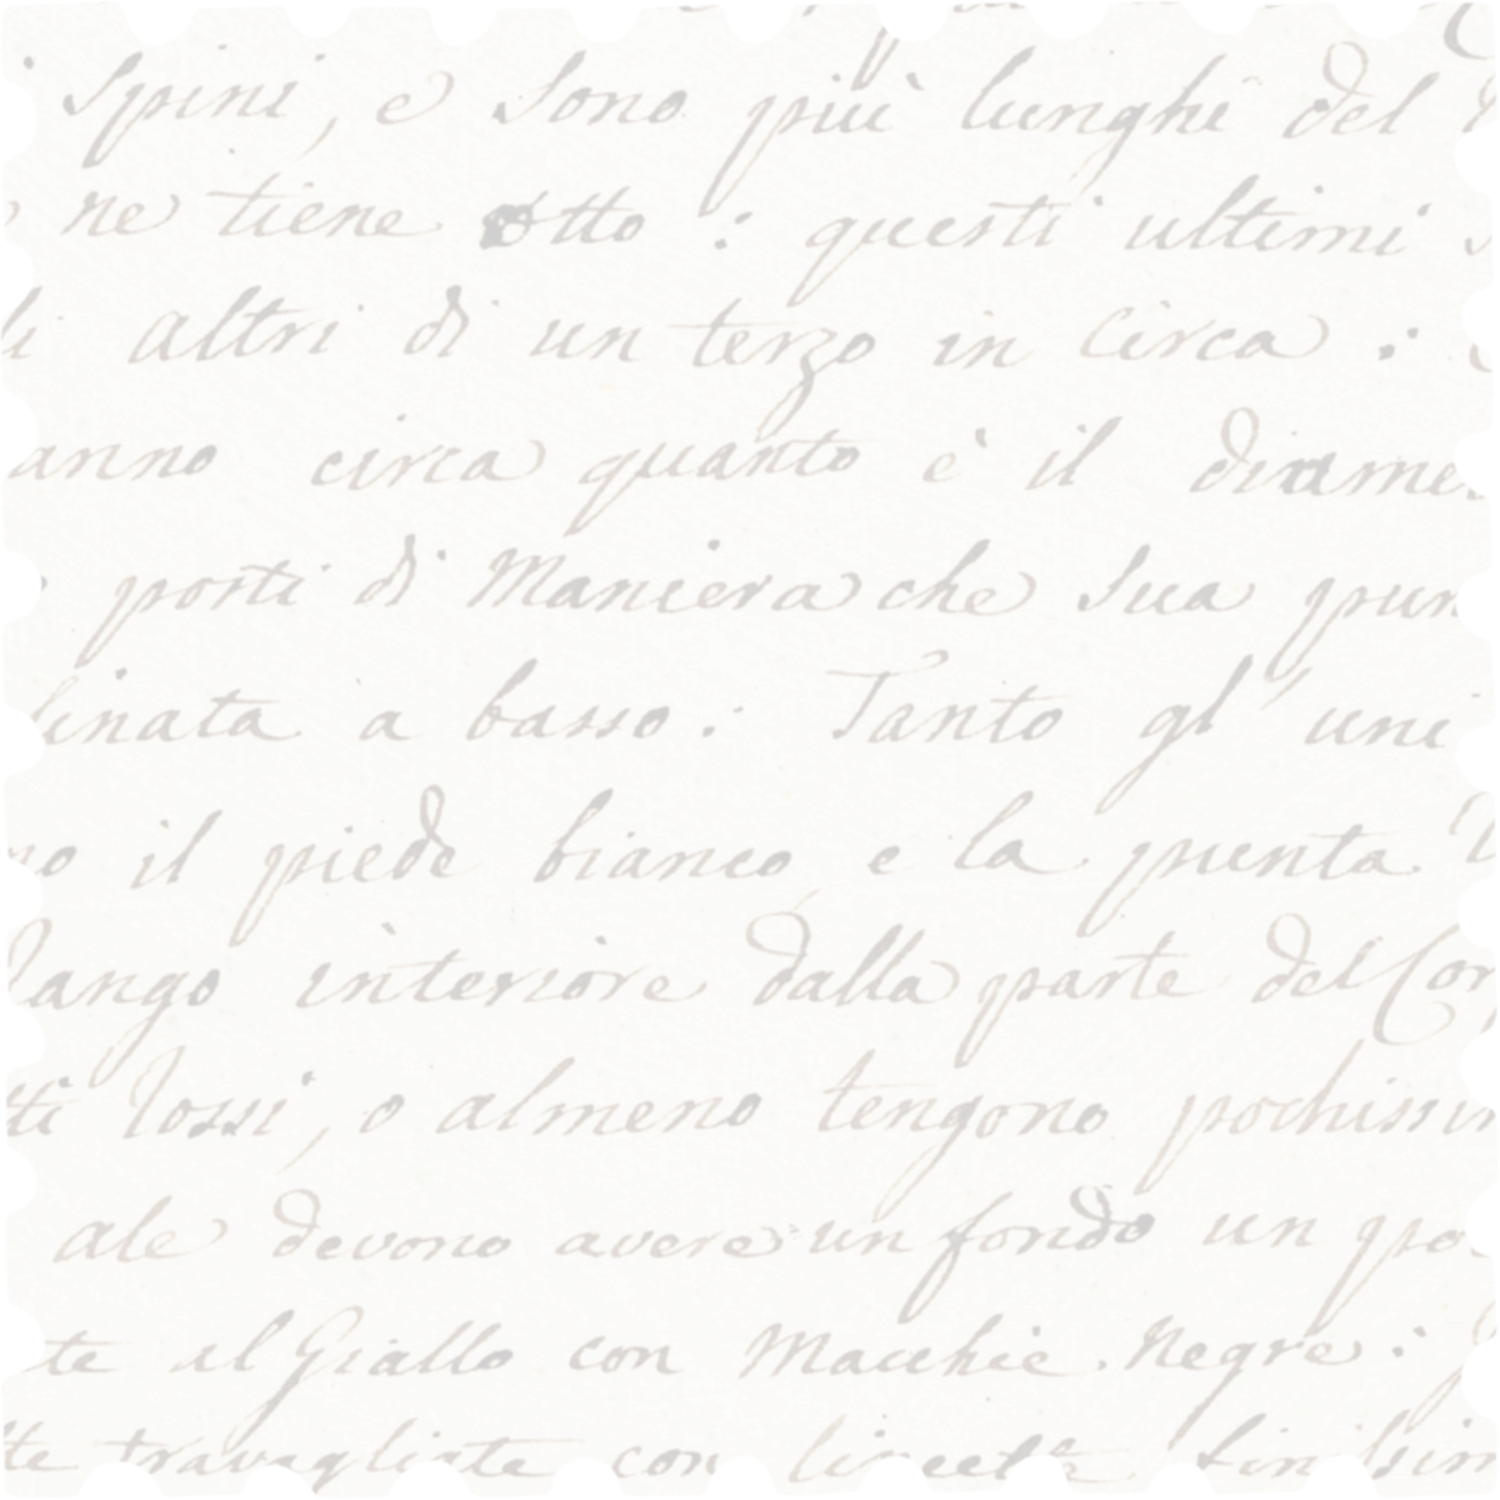 Spini, e sono più lunghi del
ne tiene otto : questi ultimi
li altri di un terzo in circa :
anno circa quanto è il diame
porti di Maniera che sua pun
linata a basso : Tanto gl' uni
no il piede bianco, e la punta
lango interiore dalla parte del Cor
ti rossi, o almeno tengono pochissi
ale devono avere un fondo un po
te al Giallo con Macchie Negre :
te travagliate con